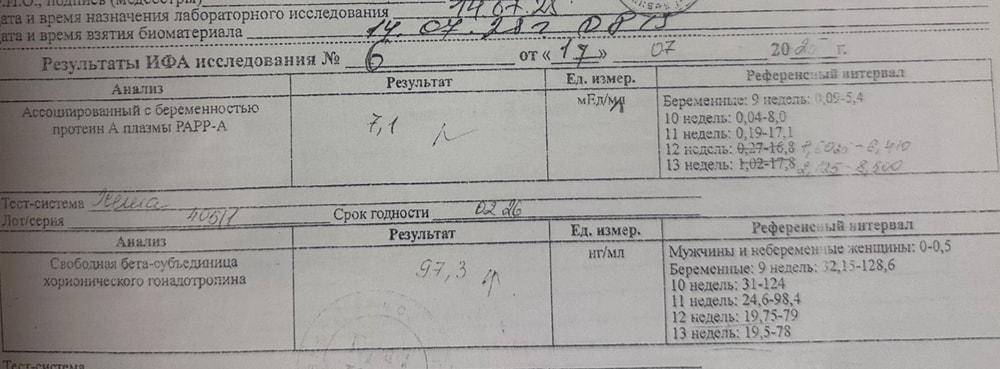 дата и время назначения лабораторного исследования 14.07.25
дата и время взятия биоматериала 14.07.25г 08
Результаты ИФА исследования № 6 от «17» 07 2025 г.
Анализ Результат Ед. измер. Референсный интервал
Ассоциированный с беременностью протеин А плазмы PAPP-A 7,1 мЕд/мл
Беременные: 9 недель: 0,09-5,4
10 недель: 0,04-8,0
11 недель: 0,19-17,1
12 недель: 0,27-16,8
13 недель: 1,02-17,8 2,125-8,500
Тест-система
Лот/серия 405/7 Срок годности 02.26
Анализ Результат Ед. измер. Референсный интервал
Свободная бета-субъединица хорионического гонадотропина 97,3 нг/мл
Мужчины и небеременные женщины: 0-0,5
Беременные: 9 недель: 32,15-128,6
10 недель: 31-124
11 недель: 24,6-98,4
12 недель: 19,75-79
13 недель: 19,5-78
Тест-система